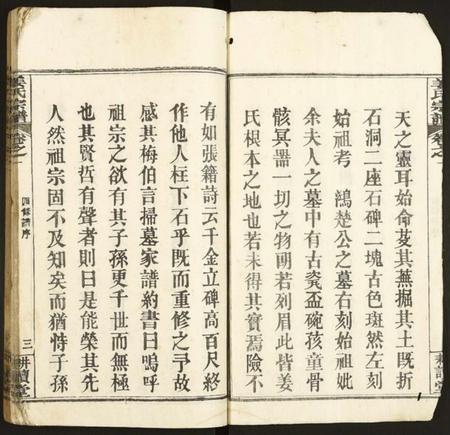 姜氏宗譜
卷之一
天之靈耳始命芟其蕪掘其土既折
石洞二座石碑二塊古色斑然左刻
始祖考 鴻楚公之墓右刻始祖妣
余夫人之墓中有古瓷盃碗孩童骨
骸冥器一切之物朗若列眉此皆姜
氏根本之地也若未得其實焉險不
有如張籍詩云千金立碑高百尺終
作他人柱下石乎既而重修之予故
感其梅伯言掃墓家譜約書曰嗚呼
祖宗之欲有其子孫更千世而無極
也其賢哲有聲者則曰是能榮其先
人然祖宗固不及知矣而猶恃子孫
姜氏宗譜
卷之一
四修譜序
三
耕讀堂